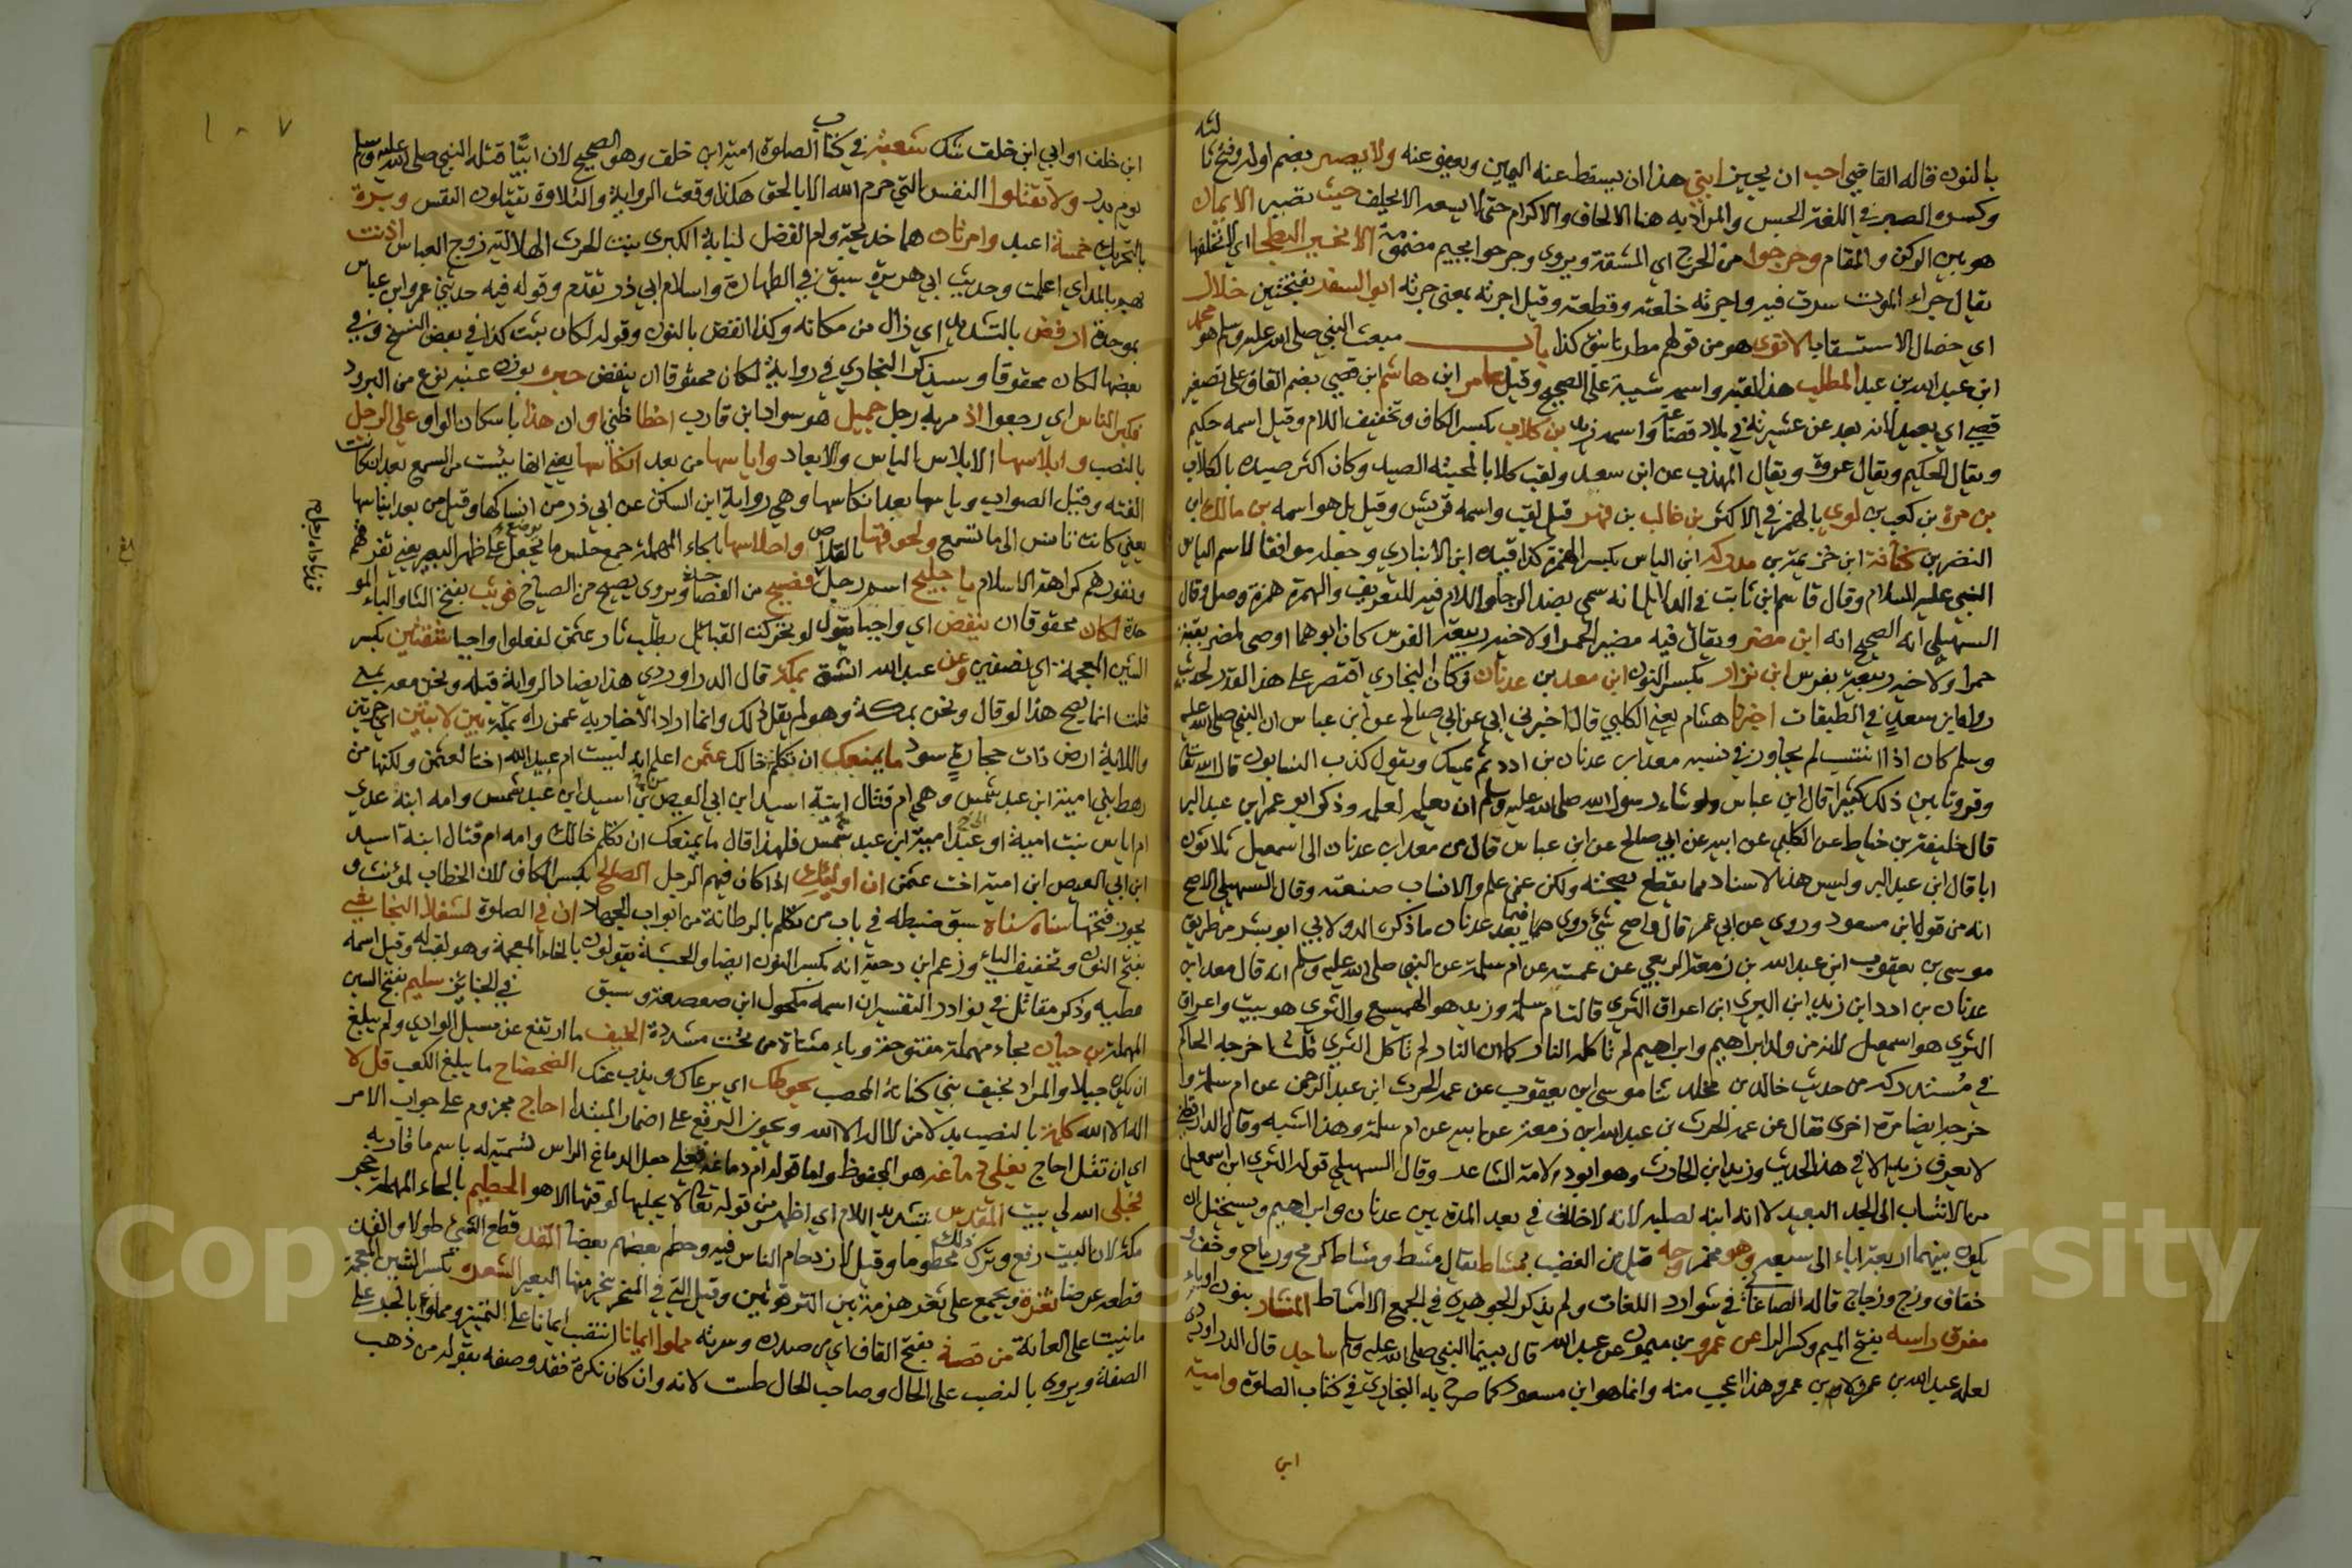 بالنون قاله القاضي احب ان يجيز ابني هذا ان يسقط عنه اليمين ويعفو عنه ولا يصبر بضم اوله وفتح ثا
لثه
وكسره الصبر في اللغة الحبس والمراد به هنا الالحاف والاكرام حتى لا يسعه الا يحلف حيث تصبر الايمان
هو بين الركن والمقام وحرجوا من الحرج اي المشقة ويروي وجرحوا بجيم مضمومة الا نخير البطحا اي لا نخلفها
يقال جراء الموت سدت فيه واجرته خلعته وقطعته وقيل اجرته بمعنى جزته ابو السفر بفتحتين خلال
اي خصال الاستسقا بالانوي هو من قولهم مطرنا بنوء كذا باب مبعث النبي صلى الله عليه وسلم هو محمد
ابن عبد الله بن عبد المطلب هذا لقبه واسمه شيبة على الصحيح وقيل عامر ابن هاشم ابن قصي بضم القاف على تصغير
قصي اي بعيد لانه بعد عن عشيرته في بلاد قضاعة واسمه زيد بن كلاب بكسر الكاف وتخفيف اللام وقيل اسمه حكيم
ويقال الحكيم ويقال عروة ويقال المهذب عن ابن سعد ولقب كلابا لمحبته الصيد وكان اكثر صيده بالكلاب
بن مرة بن كعب بن لوي بالهمز في الاكثر بن غالب بن فهر قيل لقب واسمه قريش وقيل بل هو اسمه بن مالك ابن
النضر بن كنانة ابن خزيمة بن مدركة ابن الياس بكسر الهمزة كذا قيده ابن الانباري وجعله موافقا لاسم الياس
النبي عليه السلام وقال قاسم ابن ثابت في الدلايل انه سمي بضد الرجا واللام فيه للتعريف والهمزة همزة وصل وقال
السهيلي انه الصحيح انه ابن مضر ويقال فيه مضر الحمرا ولاخيه ربيعة الفرس كان ابوهما اوصى لمضر بقبة
حمرا ولاخيه ربيعة بفرس ابن نزار بكسر النون ابن معد بن عدنان وكان البخاري اقتصر على هذا القدر لحديث
رواه ابن سعد في الطبقات اخبرنا هشام يعني الكلبي قال اخبرني ابي عن ابي صالح عن ابن عباس ان النبي صلى الله عليه
وسلم كان اذا انتسب لم يجاوز في نسبه معد ابن عدنان بن ادد ثم يمسك ويقول كذب النسابون قال الله تعالى
وقرونا بين ذلك كثيرا قال ابن عباس ولو شاء رسول الله صلى الله عليه وسلم ان يعلمه لعلمه وذكر ابو عمر ابن عبد البر
قال خليفة بن خياط عن الكلبي عن ابيه عن ابي صالح عن ابن عباس قال من معد ابن عدنان الى اسمعيل ثلاثون
ابا قال ابن عبد البر وليس هذا الاسناد مما يقطع بصحته ولكن عمن علم والانساب صنعته وقال السهيلي الاصح
انه من قول ابن مسعود وروي عن ابي عمر قال واصح شئ روي فيما بعد عدنان ما ذكره الدولابي ابو بشر من طريق
موسى بن يعقوب ابن عبد الله بن زمعة الزمعي عن عمته عن ام سلمة عن النبي صلى الله عليه وسلم انه قال معد ابن
عدنان بن ادد ابن زيد ابن البري ابن اعراق الثري قالت ام سلمة وزيد هو الهميسع والثرى هو نبيت واعراق
الثرى هو اسمعيل لانه من ولد ابراهيم وابراهيم لم تاكله النار كما ان النار لم تاكل الثرى قلت اخرجه الحاكم
في مستدركه من حديث خالد بن مخلد ثنا موسى ابن يعقوب عن عمه الحرث ابن عبد الرحمن عن ام سلمة وا
خرجه ايضا مرة اخرى فقال عن عمه الحرث بن عبد الله ابن زمعة عن ابيه عن ام سلمة وهذا اشبه وقال الدارقطني
لا يعرف زيد الا في هذا الحديث وزيد ابن الحارث وهو ابو دلامة الشاعر وقال السهيلي قوله الثرى ابن اسمعيل
من الانتساب الى الجد البعيد لا انه ابنه لصلبه لانه لا خلاف في بعد المدة بين عدنان وابراهيم ويستحيل ان
يكون بينهما اربعة اباء الى سبعة وهو محمر وجهه قيل من الغضب بمشاط يقال مشط ومشاط كرمح ورماح وخف
خفاف وزج وزجاج قاله الصاغاني في شوارد اللغات ولم يذكر الجوهري في الجمع الا امشاط المنشار بنون او ياء
مفرق راسه بفتح الميم وكسر الرا عن عمرو بن ميمون عن عبد الله قال بينما النبي صلى الله عليه وسلم ساجد قال الداودي
لعله عبد الله بن عمرو لا بن عمر وهذا اعجب منه وانما هو ابن مسعود كما صرح به البخاري في كتاب الصلوة وامية
ابن
١٠٧
ابن خلف او ابي ابن خلف شك شعبة في كتاب الصلوة امية ابن خلف وهو الصحيح لان ابيا قتله النبي صلى الله عليه وسلم
يوم بدر ولا تقتلوا النفس التي حرم الله الا بالحق هكذا وقعت الرواية والتلاوة يقتلون النفس وبردة
بالتحريك خمسة اعبد وامرتان هما خديجة وام الفضل لبابة الكبرى بنت الحرث الهلالية زوج العباس اذنت
بهم بالمد اي اعلمت وحديث ابي هريرة سبق في الطهارة واسلام ابي ذر تقدم وقوله فيه حدثني عمرو ابن عباس
بموحدة ارفض بالتشديد اي زال من مكانه وكذا انفض بالنون وقوله لكان بثت كذا في بعض النسخ وفي
بعضها لكان محقوقا وسيذكر البخاري في رواية لكان محقوقا ان ينقض حبره بوزن عنبه نوع من البرود
فكبر الناس اي رجعوا اذ مر به رجل جميل هو سواد ابن قارب اخطا ظني او ان هذا باسكان الواو علي الرجل
بالنصب وابلاسها الابلاس الياس والابعاد واياسها من بعد انكاسها يعني انها يئست من السمع بعد ان كانت
الفته وقيل الصواب وياسها بعد انكاسها وهي رواية ابن السكن عن ابي ذر من انساكها وقيل من بعد ايناسها
يعني كانت تانس الى ما تسمع ولحوقها بالقلاص واحلاسها بالحاء المهملة جمع حلس ما يجعل على ظهر البعير يعني تفرقهم
ونفورهم كراهة الاسلام يا جليح اسم رجل فصيح من الفصاحة ويروى يصيح من الصياح فوثب بفتح الثا والباء المو
حدة لكان محقوقا ان ينقض اي واجبا يقول لو تحركت القبائل بطلب ثار عثمن لفعلوا واجبا شقتين بكسر
الشين المعجمة اي نصفين وعن عبد الله انشق بمكة قال الداوردي هذا يضاد الرواية قبله ونحن معه بمنى
قلت انما يصح هذا لو قال ونحن بمكة وهو لم يقل ذلك وانما اراد الاخبار به عمن راه بمكة بين لابتين اي حرتين
واللابة ارض ذات حجارة سود ما يمنعك ان تكلم خالك عثمن اعلم انه ليست ام عبيد الله اختا لعثمن ولكنها من
رهط بني امية ابن عبد شمس وهي ام قتال ابنة اسيد ابن ابي العيص بن اسيد ابن عبد شمس وامه ابنة عدي
ام اياس بنت امية او عبد امية ابن عبد شمس فلهذا قال ما يمنعك ان تكلم خالك وامه ام قتال ابنة اسيد
ابن ابي العيص ابن امية اخت عثمن ان اوليك اذا كان فيهم الرجل الصالح بكسر الكاف لان الخطاب لمؤنث و
يجوز فتحها سناه سناه سبق ضبطه في باب من تكلم بالرطانة من ابواب الجهاد ان في الصلوة لشغلا النجاشي
بفتح النون وتخفيف الياء وزعم ابن دحية انه بكسر النون ايضا والحبشة يقولون بالخاء المعجمة وهو لقب له وقيل اسمه
مطيه وذكر مقاتل في نوادر التفسير ان اسمه مكحول ابن صعصعة وسبق في الجنائز سليم بفتح السين
المهملة بن حيان بحاء مهملة مفتوحة وياء مثناة من تحت مشددة الخيف ما ارتفع عن مسيل الوادي ولم يبلغ
ان يكون جبلا والمراد بخيف بني كنانة المحصب يحوطك اي يرعاك ويذب عنك الضحضاح ما يبلغ الكعب قل لا
اله الا الله كلمة بالنصب بدلا من لا اله الا الله ويجوز الرفع على اضمار المبتدا احاج مجزوم على جواب الامر
اي ان تقل احاج يغلي دماغه هو المحفوظ واما قوله ام دماغه فعلي جعل الدماغ الراس لتسميته له باسم ما قاربه
فجلى الله لي بيت المقدس بتشديد اللام اي اظهر من قوله تعالى لا يجليها لوقتها الا هو الحطيم بالحاء المهملة حجر
مكة لان البيت رفع وترك ذلك محطوما وقيل لازدحام الناس فيه وحطم بعضهم بعضا القد قطع الشئ طولا والقد
قطعه عرضا ثغرة ويجمع على ثغر هزمة بين الترقوتين وقيل التي في المنحر ينحر منها البعير الشعرة بكسر الشين المعجمة
ما نبت على العانة من قصه بفتح القاف اي من صدره وسرته مملوا ايمانا انتصب ايمانا على التمييز ومملوا بالجر على
الصفة ويروى بالنصب على الحال وصاحب الحال طست لانه وان كان نكرة فقد وصفه بقوله من ذهب
Copyright © King Saud University